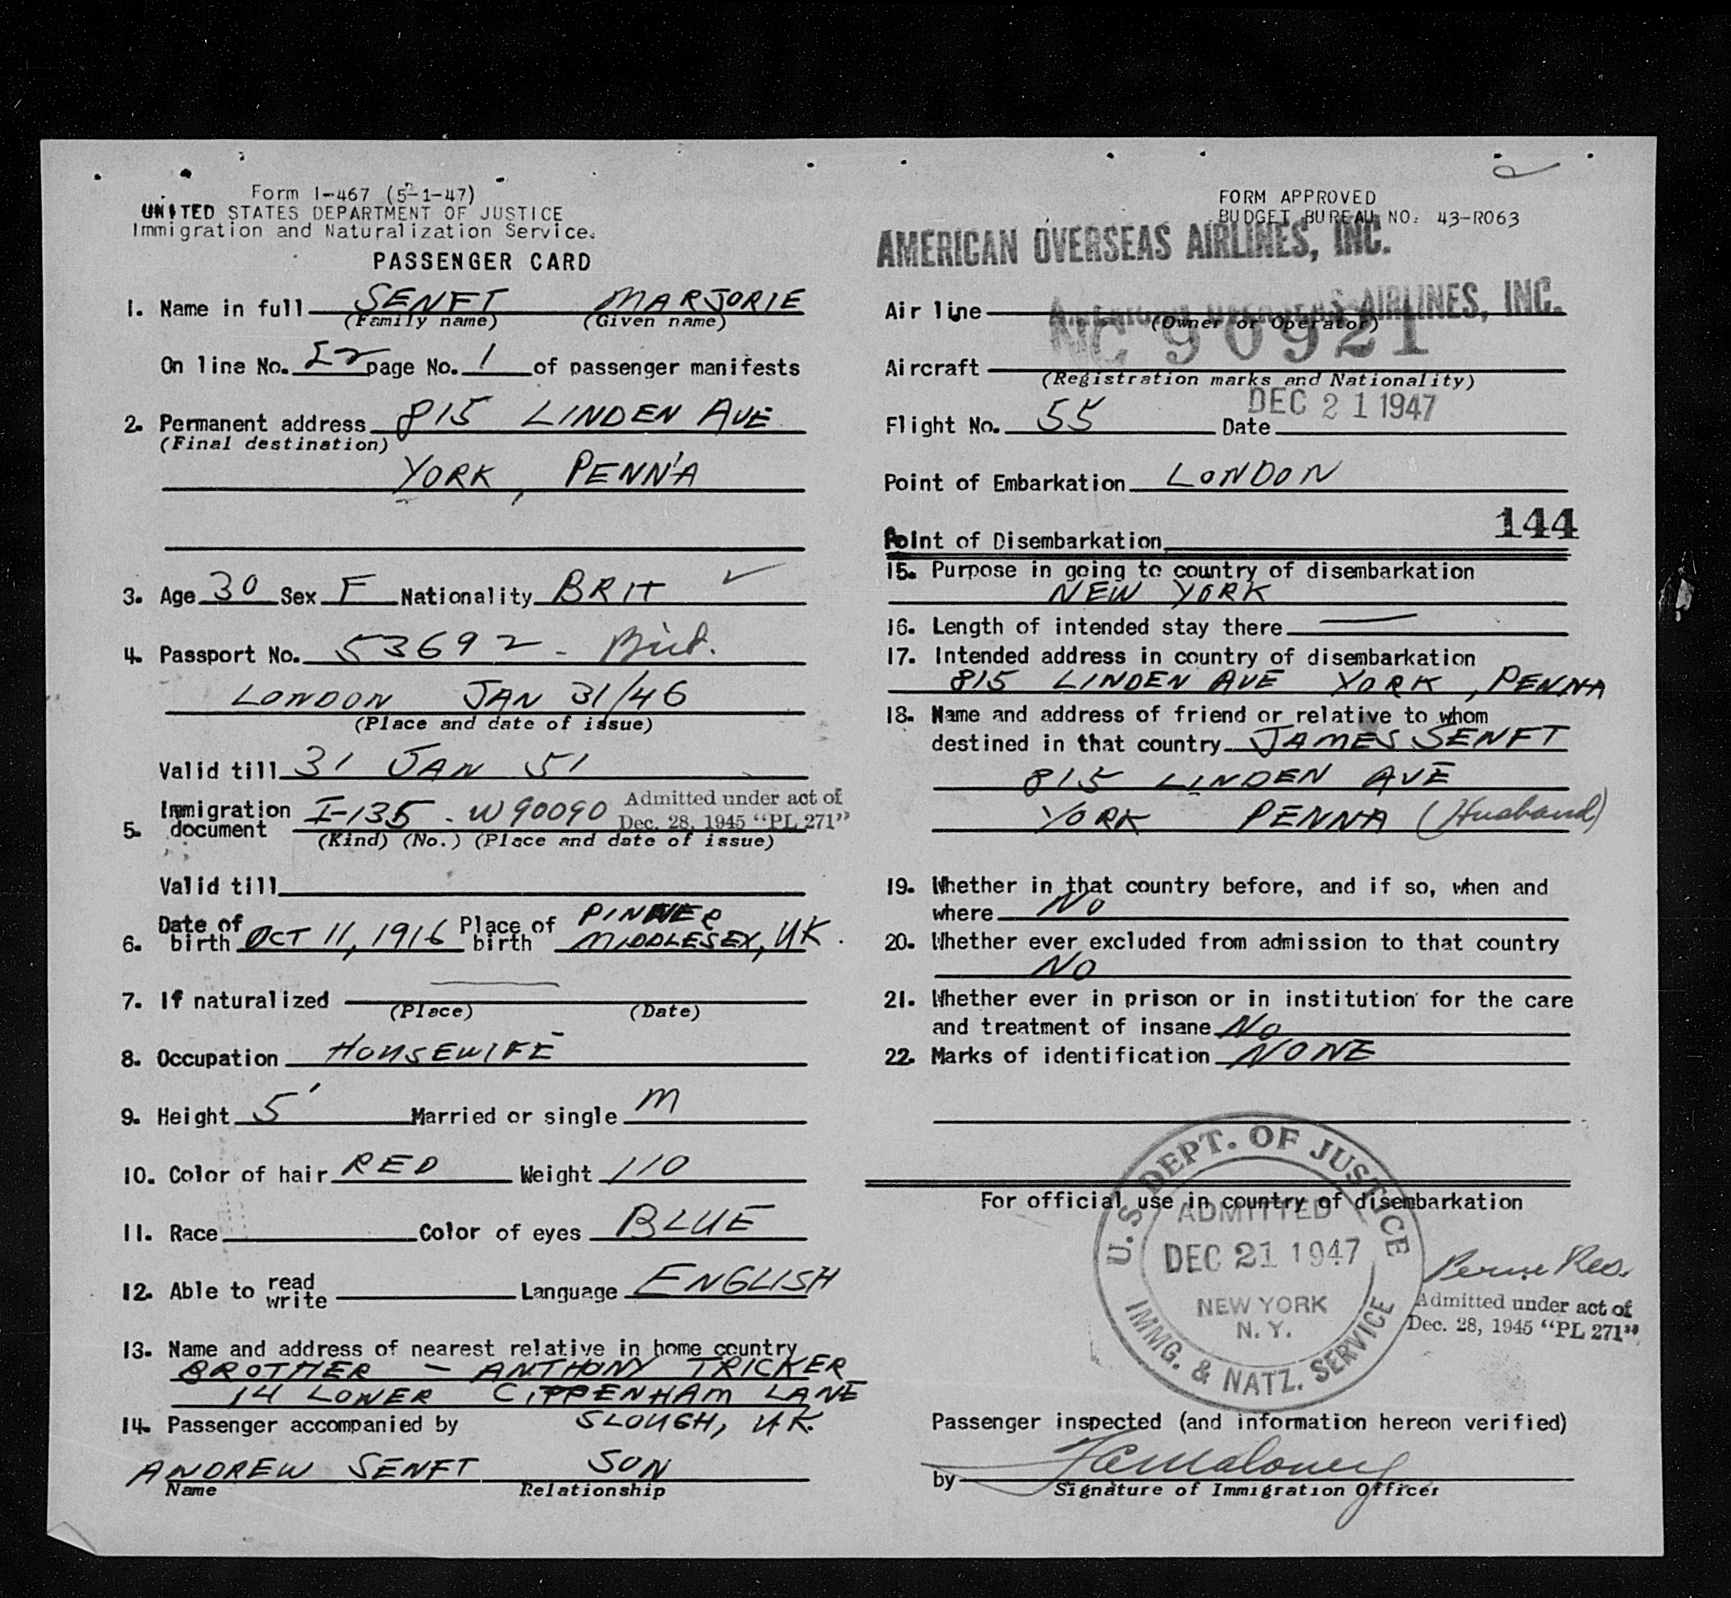 Form I-467 (5-1-47)
UNITED STATES DEPARTMENT OF JUSTICE
Immigration and Naturalization Service.
PASSENGER CARD
1. Name in full SENFT MARJORIE
(Family name) (Given name)
On line No. page No. 1 of passenger manifests
2. Permanent address 815 LINDEN AVE
(Final destination)
YORK, PENN'A
3. Age 30 Sex F Nationality BRIT ✓
4. Passport No. 53692 - Brit.
LONDON JAN 31/46
(Place and date of issue)
Valid till 31 JAN 51
5. Immigration document I-135 - W90090 Admitted under act of
Dec. 28, 1945 "PL 271"
(Kind) (No.) (Place and date of issue)
Valid till
6. Date of birth OCT 11, 1916 Place of birth PINNER
MIDDLESEX, UK.
7. If naturalized
(Place) (Date)
8. Occupation HOUSEWIFE
9. Height 5' Married or single M
10. Color of hair RED Weight 110
11. Race Color of eyes BLUE
12. Able to read write Language ENGLISH
13. Name and address of nearest relative in home country
BROTHER - ANTHONY TRICKER
14 LOWER CIPPENHAM LANE
SLOUGH, UK.
14. Passenger accompanied by
ANDREW SENFT SON
Name Relationship
FORM APPROVED
BUDGET BUREAU NO. 43-R063
AMERICAN OVERSEAS AIRLINES, INC.
Air line AMERICAN OVERSEAS AIRLINES, INC.
(Owner or Operator)
Aircraft NC 90921
(Registration marks and Nationality)
Flight No. 55 Date DEC 21 1947
Point of Embarkation LONDON
144
Point of Disembarkation
15. Purpose in going to country of disembarkation
NEW YORK
16. Length of intended stay there —
17. Intended address in country of disembarkation
815 LINDEN AVE YORK, PENNA
18. Name and address of friend or relative to whom
destined in that country JAMES SENFT
815 LINDEN AVE
YORK PENNA (Husband)
19. Whether in that country before, and if so, when and
where No
20. Whether ever excluded from admission to that country
NO
21. Whether ever in prison or in institution for the care
and treatment of insane No
22. Marks of identification NONE
For official use in country of disembarkation
U.S. DEPT. OF JUSTICE
ADMITTED
DEC 21 1947
NEW YORK
N. Y.
IMMG. & NATZ. SERVICE
Res.
Admitted under act of
Dec. 28, 1945 "PL 271"
Passenger inspected (and information hereon verified)
by
Signature of Immigration Officer